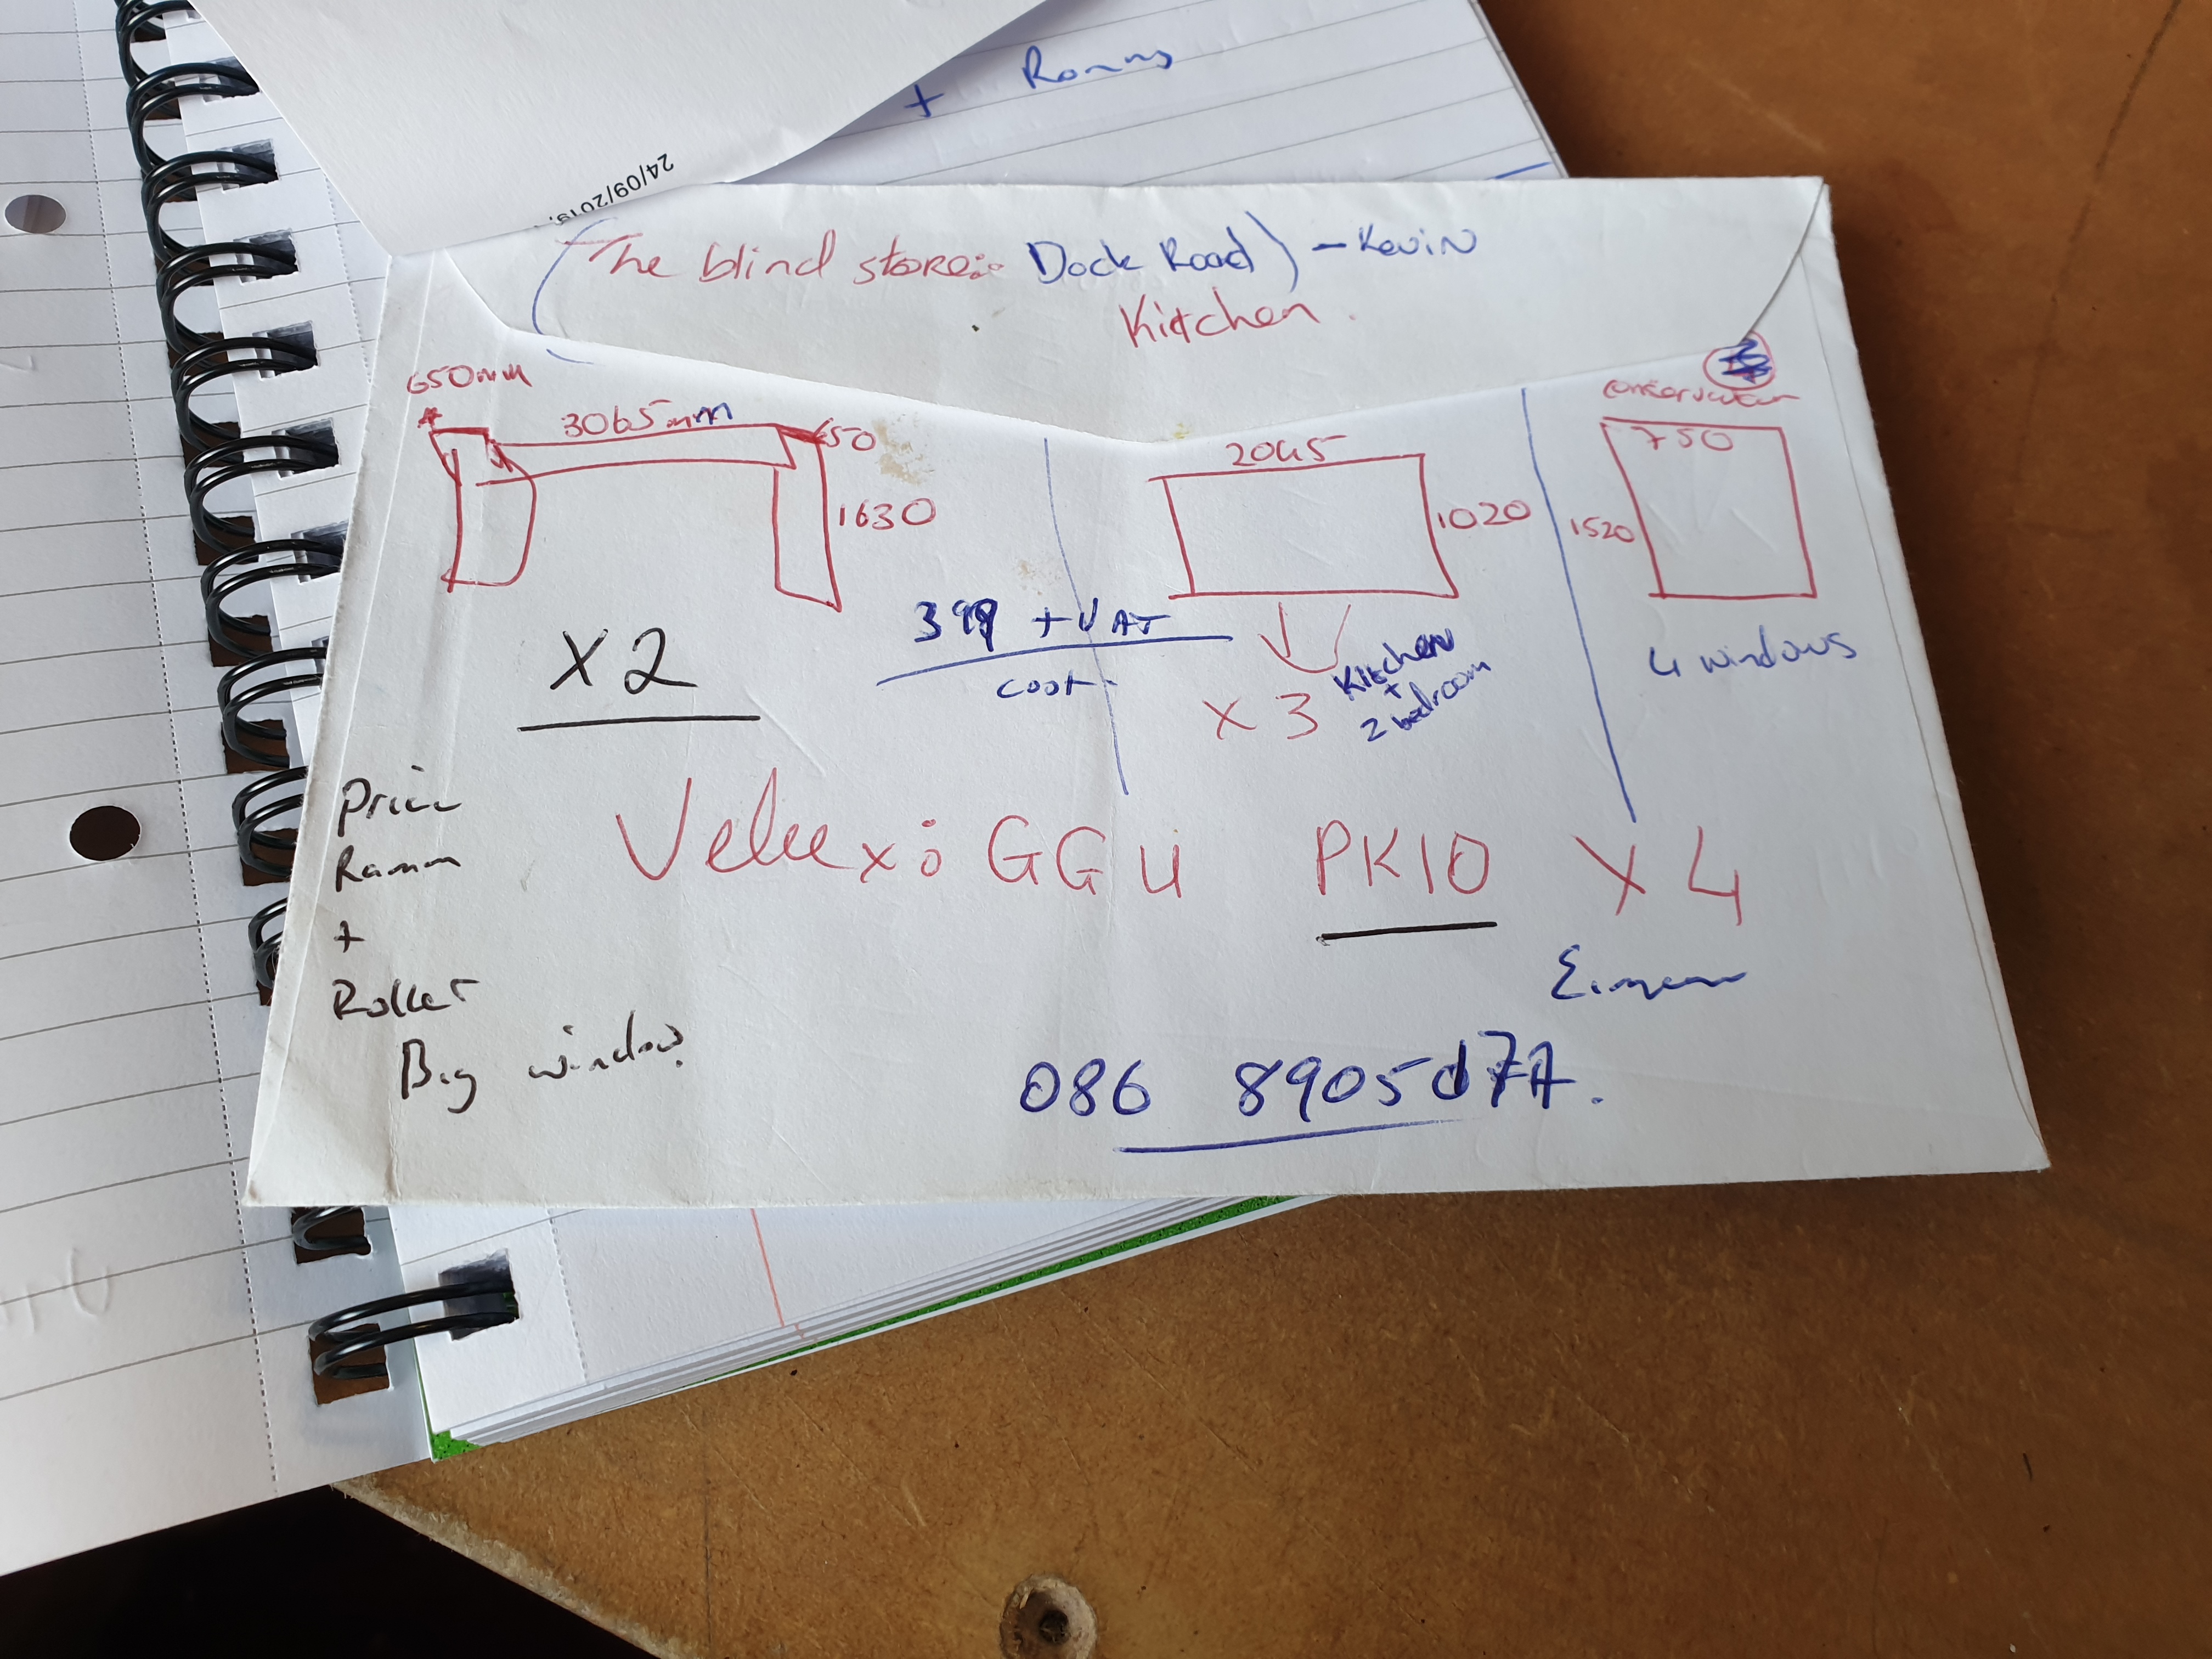 +
24/09/2019,
(The blind store: Dock Road) - Kevin
Kitchen.
650mm
3065mm
650
1630
2045
1020
750
1520
399 + VAT
cost
x 2
x 3
Kitchen
+
2 bedroom
4 windows
Price
+
Roller
Big window.
Velux: GGU PK10 x 4
086